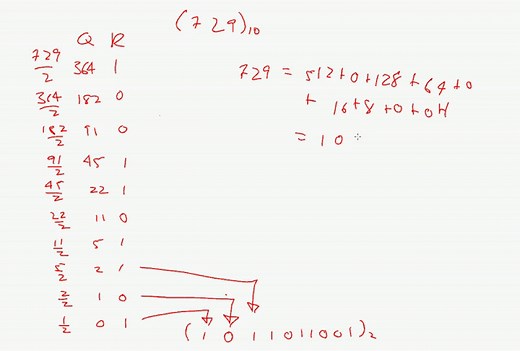 (729)10
Q R
729/2 364 1
364/2 182 0
182/2 91 0
91/2 45 1
45/2 22 1
22/2 11 0
11/2 5 1
5/2 2 1
2/2 1 0
1/2 0 1
729 = 512+0+128+64+0
+ 16+8+0+0+1
= 10
(1011011001)2